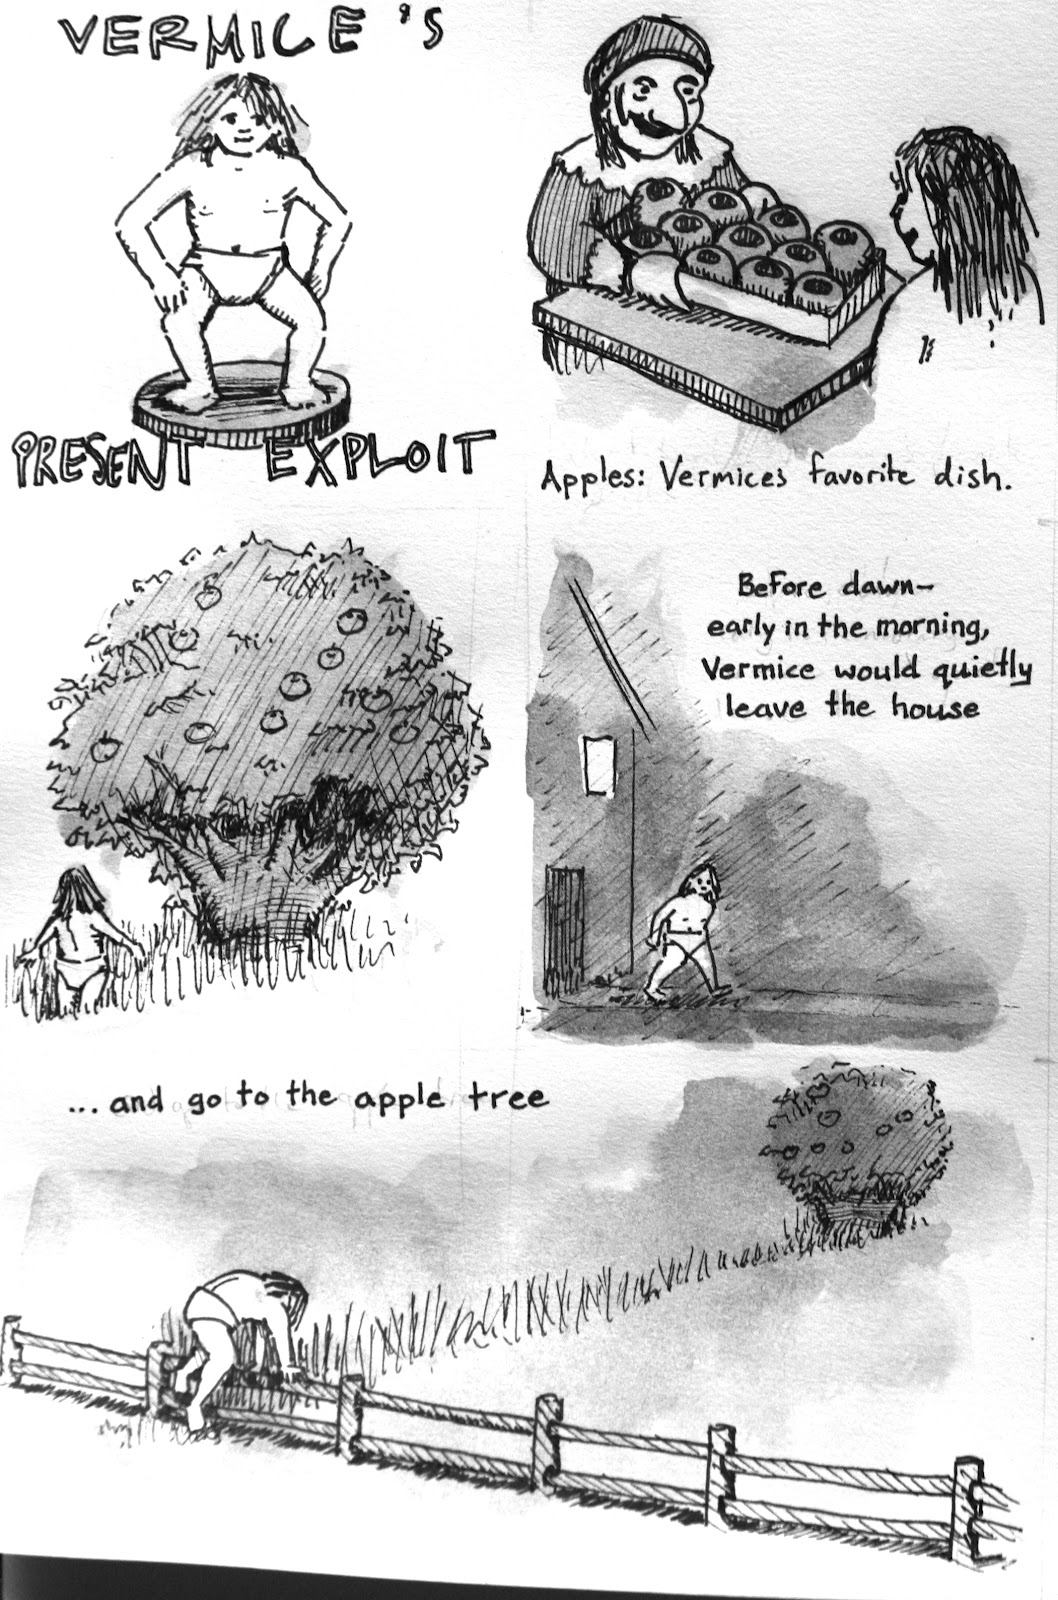 VERMICE'S
PRESENT EXPLOIT
Apples: Vermice's favorite dish.
Before dawn—
early in the morning,
Vermice would quietly
leave the house
...and go to the apple tree